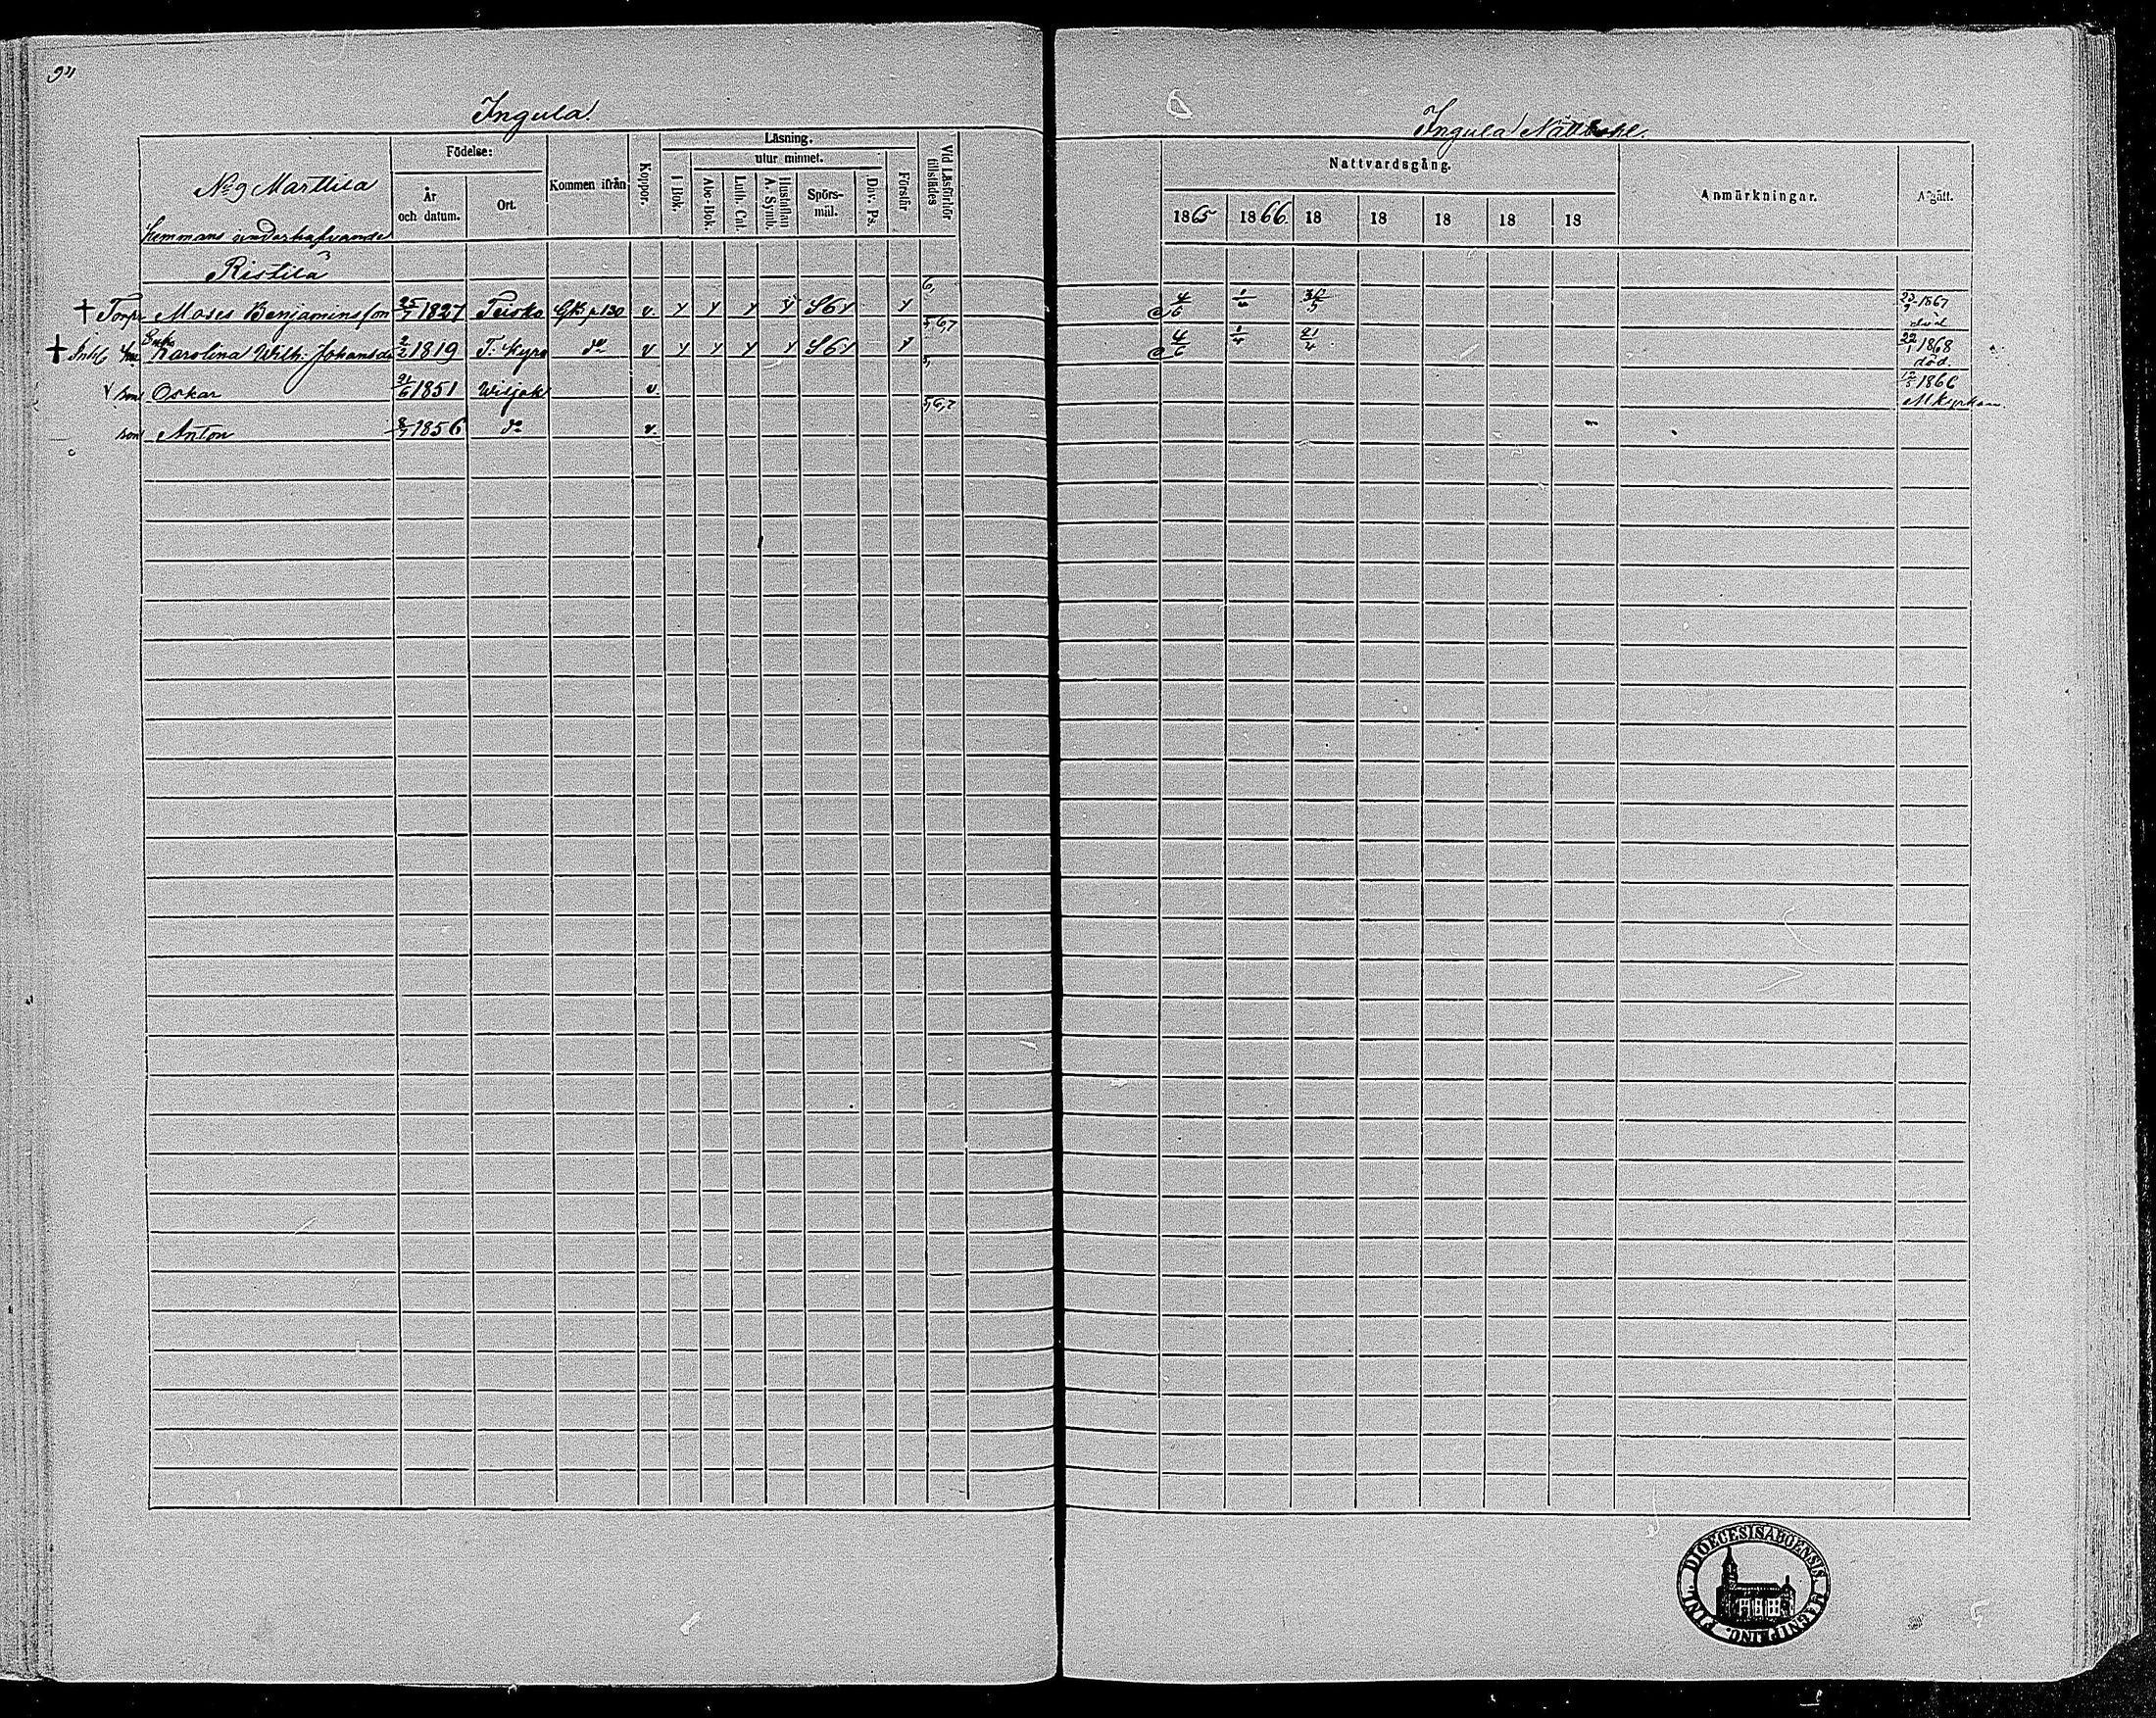 94
Ingula
Nº 9 Marttila
hemmans underhafvande
Födelse:
År
och datum.
Ort.
Kommen ifrån
Koppor.
Läsning.
utur minnet.
I Bok.
Abc-Bok.
Luth. Cat.
Hustaflan
A. Symb.
Spörs-
mål.
Dav. Ps.
Förstår
Vid Läsförhör
tillstädes
Ristila
† Torp. Moses Benjaminsson 25/7 1827 Teisko GKB p. 130 v. y y y y S6y y 6,
† Inh. Enka Karolina Wilh. Johansdr 2/2 1819 T. Kyro do v y y y y S6y y 5,6,7
son Oskar 21/6 1851 Wiljak v. 5,
son Anton 8/7 1856 do v. 5,6,7
Ingula
Nattvardsgång.
1865 1866. 18 18 18 18 18
Anmärkningar.
Afgått.
4/6 30/5 1867
död
4/6 21/4 22/1 1868
död.
1866
DIOECESIS ABOENSIS. MAGNI PRINC. FINL.